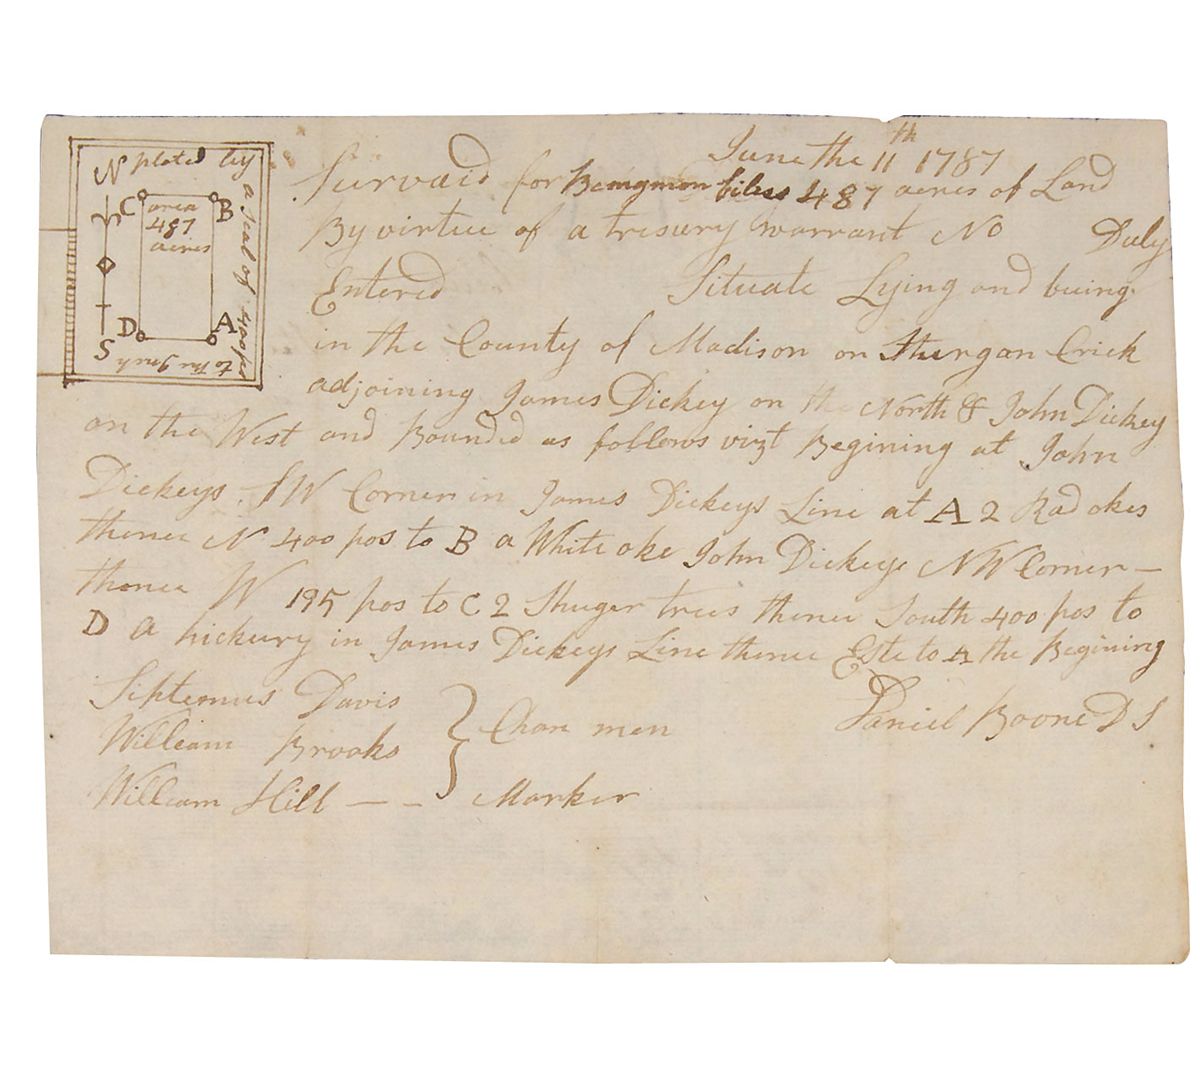 June the 11th 1787
Survaid for Bengmon biles 487 acres of Land
By virtue of a tresury warrant No Duly
Entered Situate Lying and being
in the County of Madison on Sturgan Crick
adjoining James Dickey on the North & John Dickey
on the West and Bounded as follows vizt Begining at John
Dickeys S W Corner in James Dickeys Line at A 2 Rad okes
thence N 400 pos to B a White oke John Dickeys N W Corner —
thence W 195 pos to C 2 Shuger trees thence South 400 pos to
D a hickury in James Dickeys Line thence Este to A the Begining
Daniel Boone D S
Septemus Davis
William Brooks } Chan men
William Hill — — Marker
N plated by a Scal of 400 po
to the Inch
C B
area
487
acres
D A
S